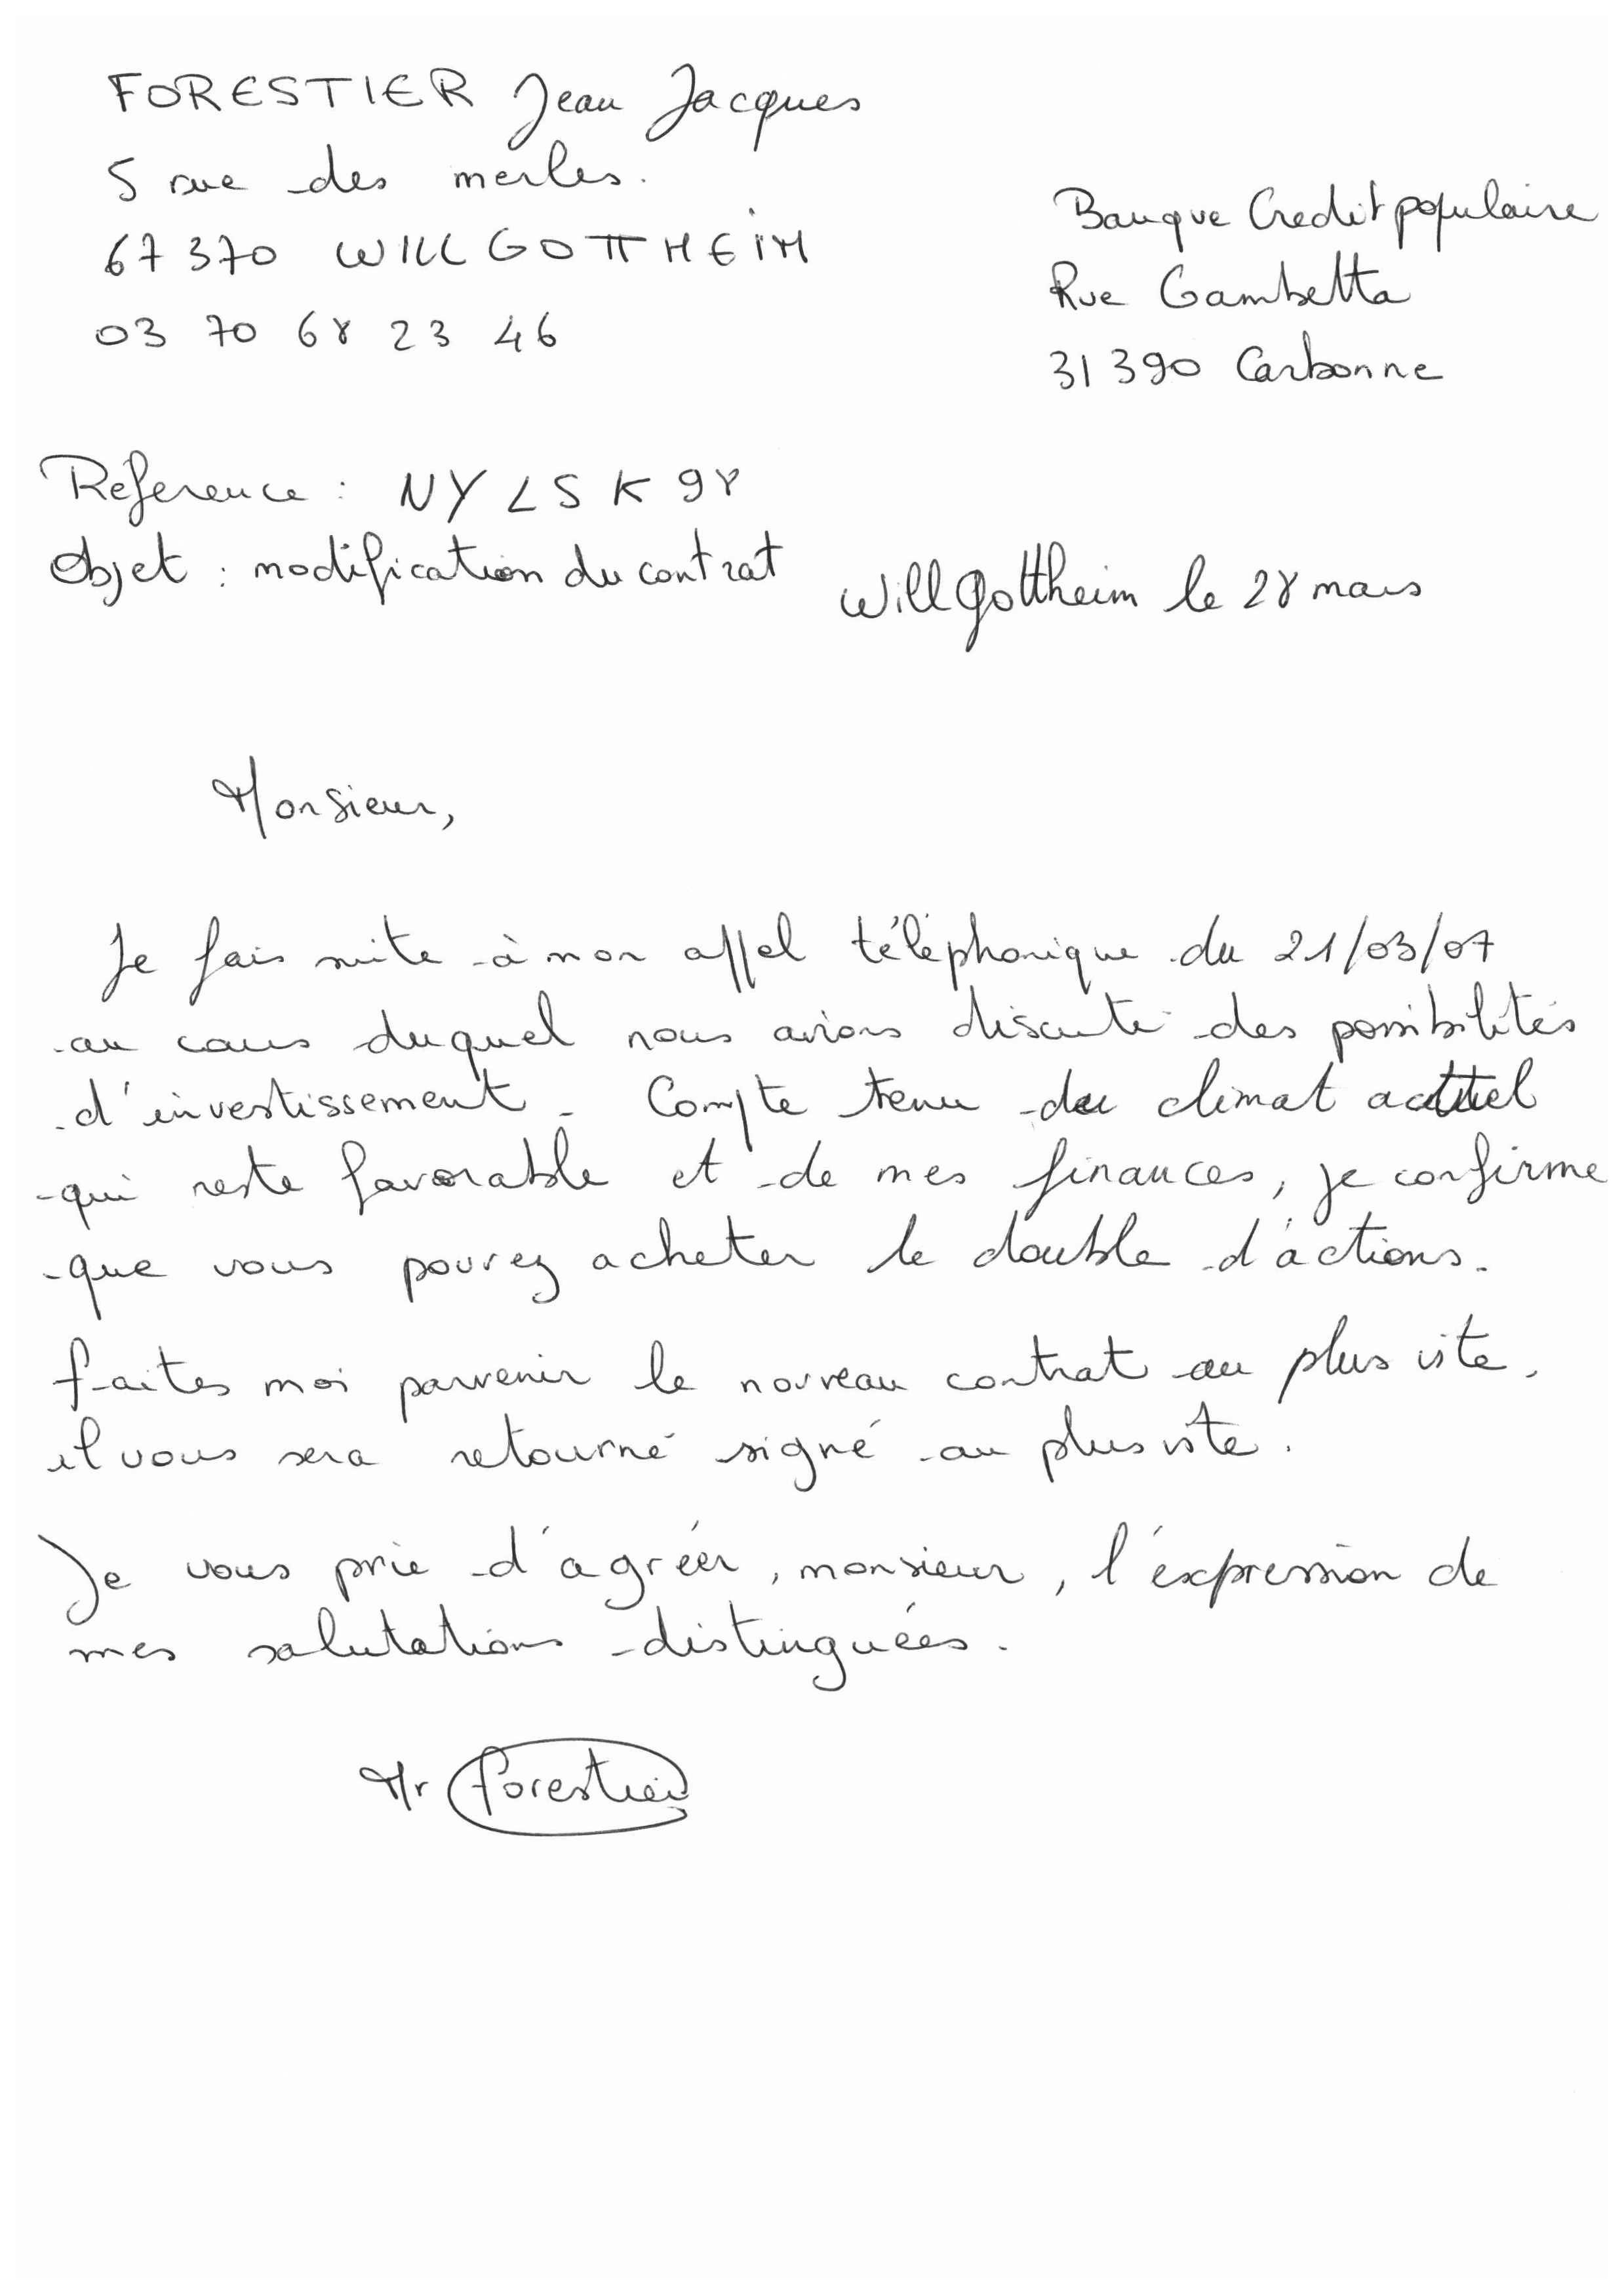 FORESTIER Jean Jacques
5 rue des merles.
67370 WILLGOTTHEIM
03 70 68 23 46
Banque Credit populaire
Rue Gambetta
31390 Carbonne
Reference : NYLSK98
Objet : modification du contrat
Willgottheim le 28 mars
Monsieur,
Je fais suite à mon appel téléphonique du 21/03/07
au cours duquel nous avions discuté des possibilités
d'investissement. Compte tenu du climat actuel
qui reste favorable et de mes finances, je confirme
que vous pouvez acheter le double d'actions.
faites moi parvenir le nouveau contrat au plus vite,
il vous sera retourné signé au plus vite.
Je vous prie d'agréer, monsieur, l'expression de
mes salutations distinguées.
Mr Forestier